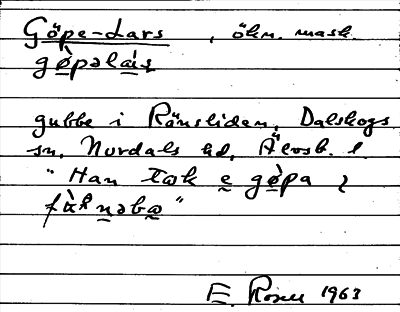 Göpe-Lars, ökn. mask.
gø̀pəla̱i̱s
gubbe i Ränsliden, Dalskogs
sn, Nordals hd, Älvsb. l.
"Han tæk e̱ gø̀pa
fàk nəbə"
E. Rosell 1963